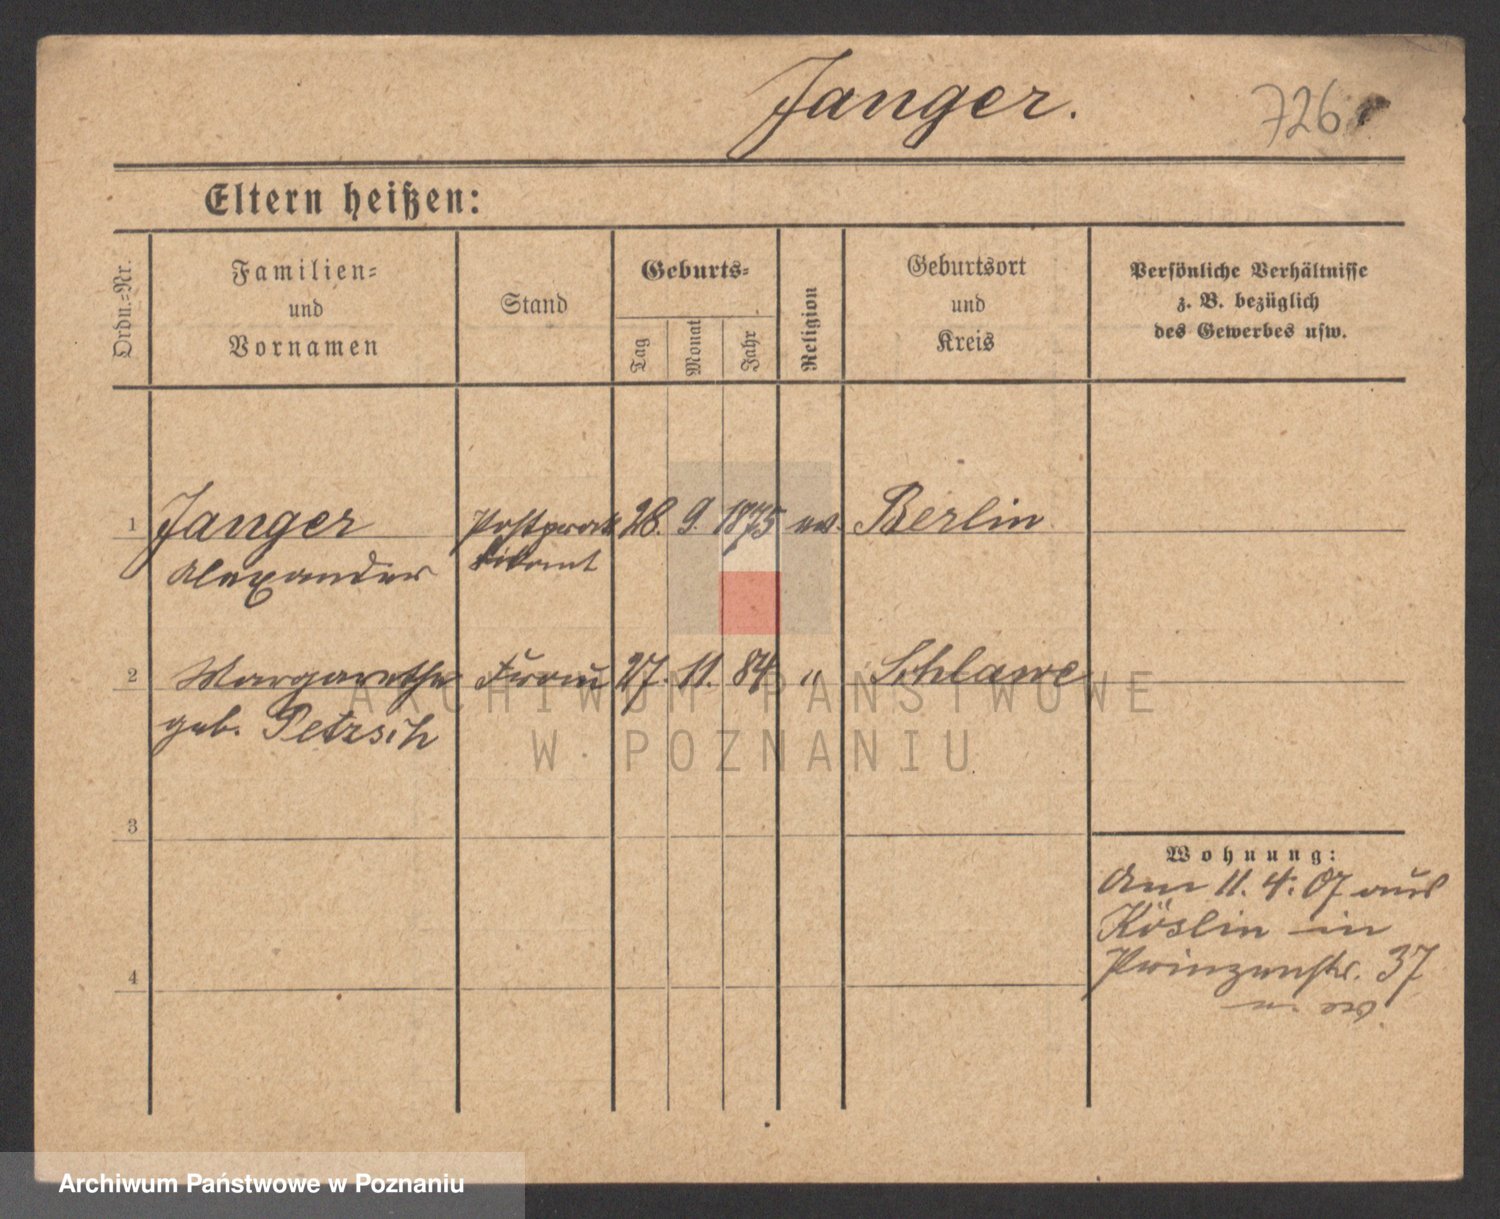 Janger.
726
Eltern heißen:
Ordn.=Nr.
Familien=
und
Vornamen
Stand
Geburts=
Tag
Monat
Jahr
Religion
Geburtsort
und
Kreis
Persönliche Verhältnisse
z. B. bezüglich
des Gewerbes usw.
1 Janger Postprak 28. 9. 1875 ev. Berlin
Alexander tikant
2 Margarethe Frau 27. 11. 84 " Schlawe
geb. Petzsch
3
Wohnung:
Am 11. 4. 07 aus
Köslin in
Prinzenstr. 37
4
ARCHIWUM PAŃSTWOWE
W POZNANIU
Archiwum Państwowe w Poznaniu